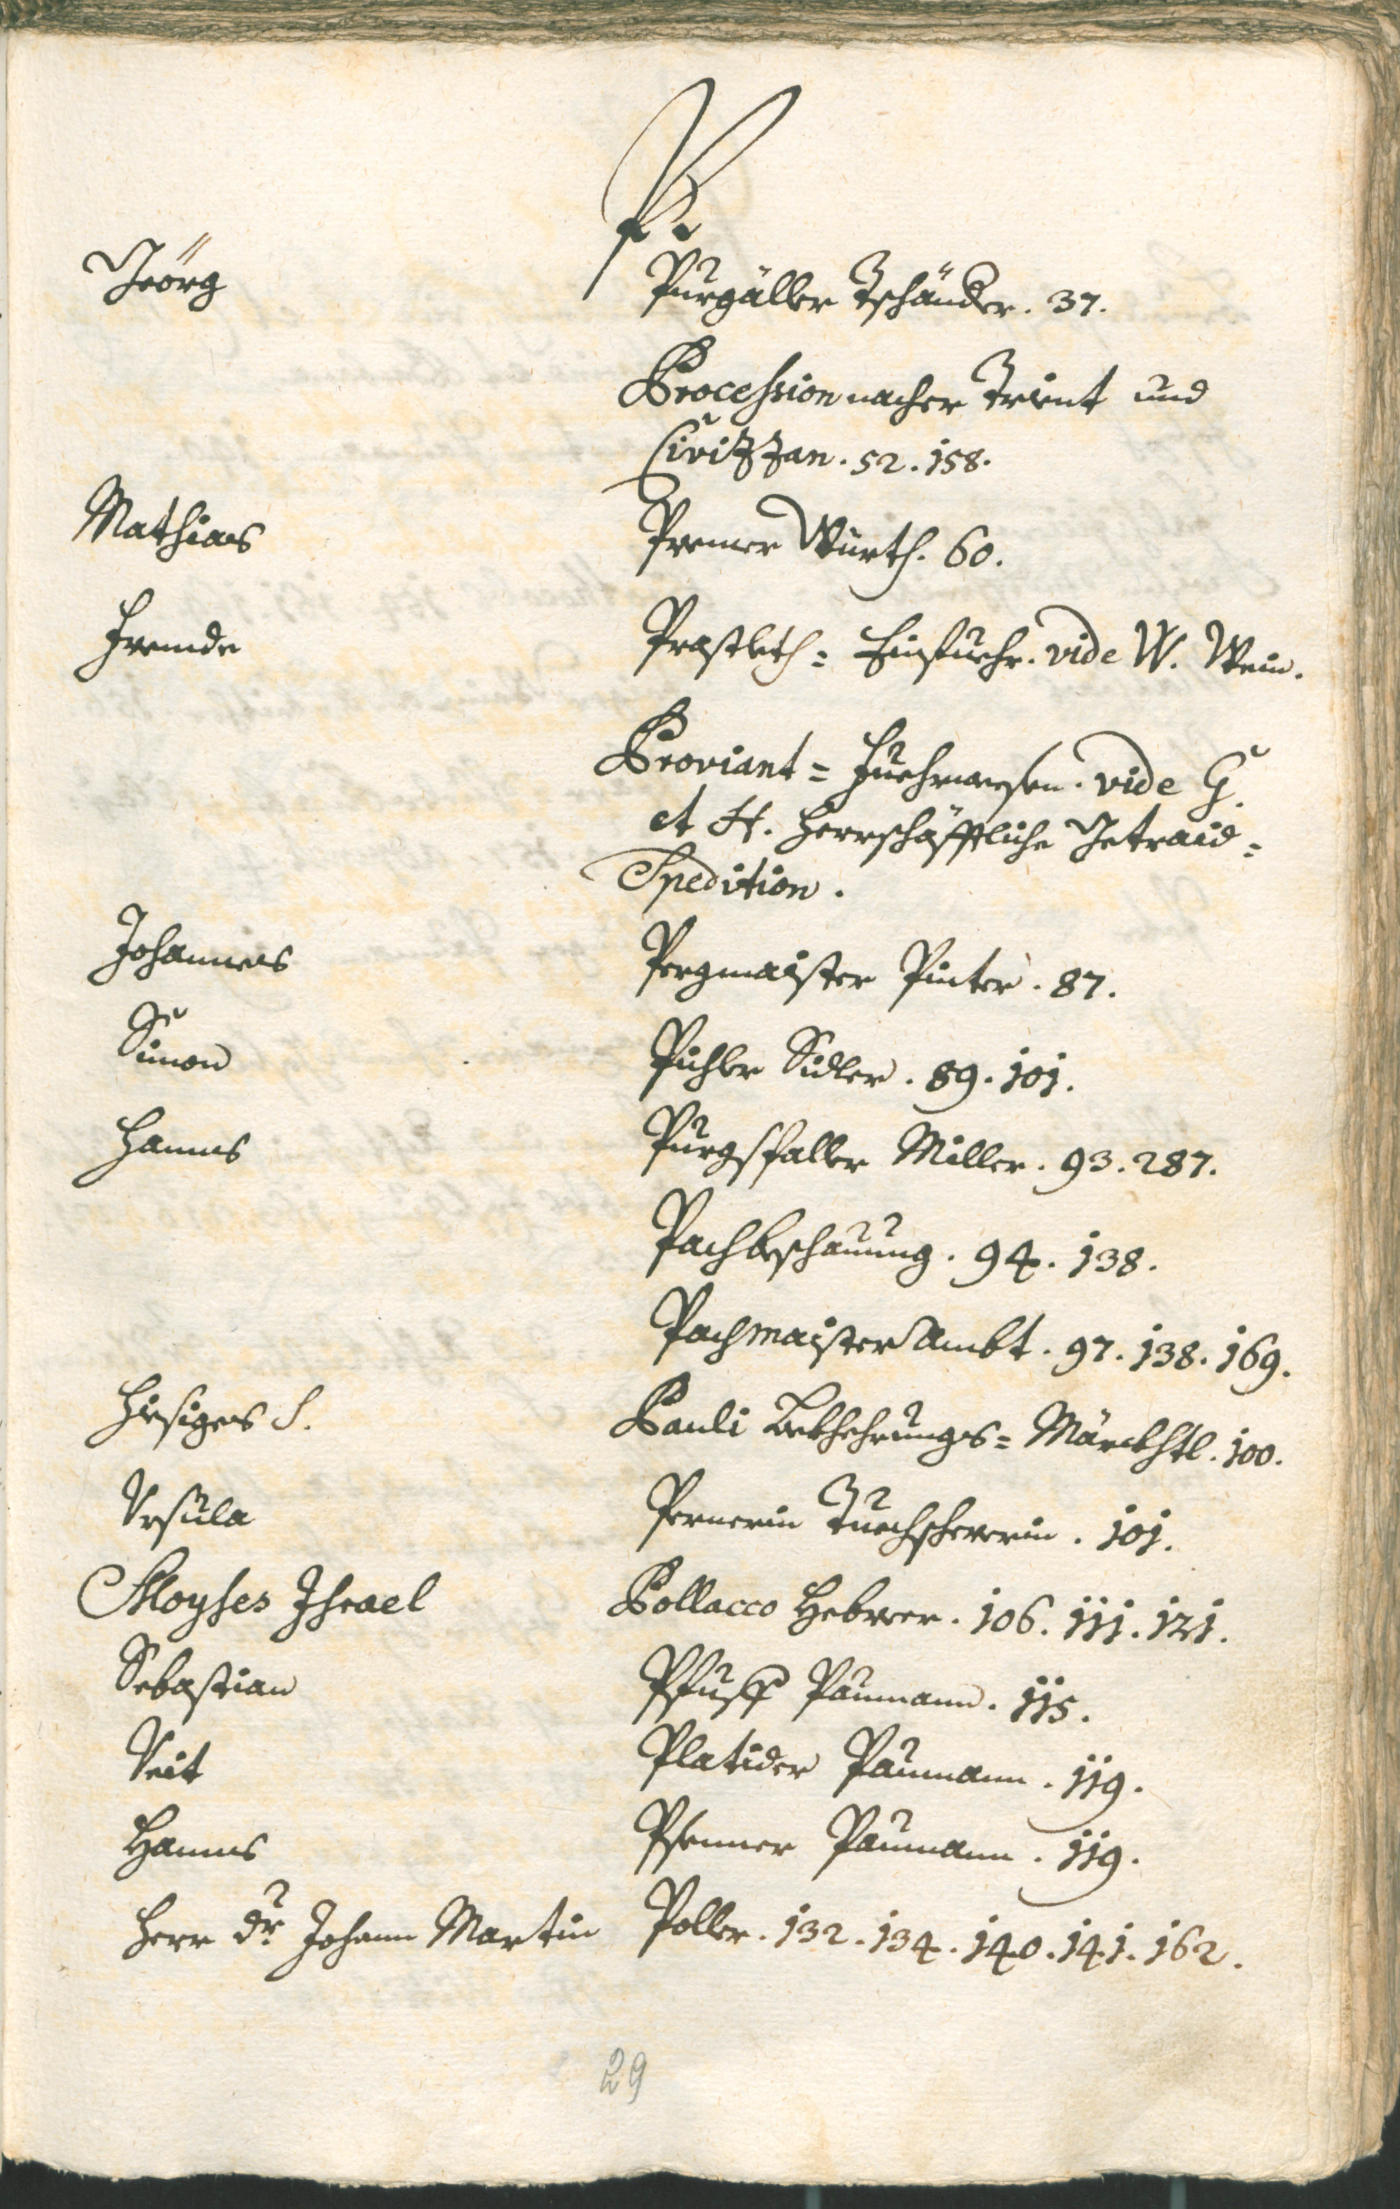 P
Jeörg Purgäller Tschänder. 37.
Procession nacher Trient und
Civitzzan. 52. 158.
Mathias Premer Würth. 60.
Fremde Prästleth= Einfuehr. vide W. Wein.
Proviant= Fuehrwesen. vide G.
et H. Herrschäfftliche Getraid=
Spedition.
Johannes Pergmaister Pinter. 87.
Simon Pichler Sidler. 89. 101.
Hanns Purgstaller Miller. 93. 287.
Pachbeschauung. 94. 138.
Pachmaister Ambt. 97. 138. 169.
Hiesiges S. Pauli Bekhehrungs= Märckhtl. 100.
Ursula Pernerin Tuechschererin. 101.
Moyses Israel Pollacco Hebreer. 106. 111. 121.
Sebastian Paumann. 115.
Veit Platider Paumann. 119.
Hanns Psenner Paumann. 119.
Herr Dr. Johann Martin Poller. 132. 134. 140. 141. 162.
29